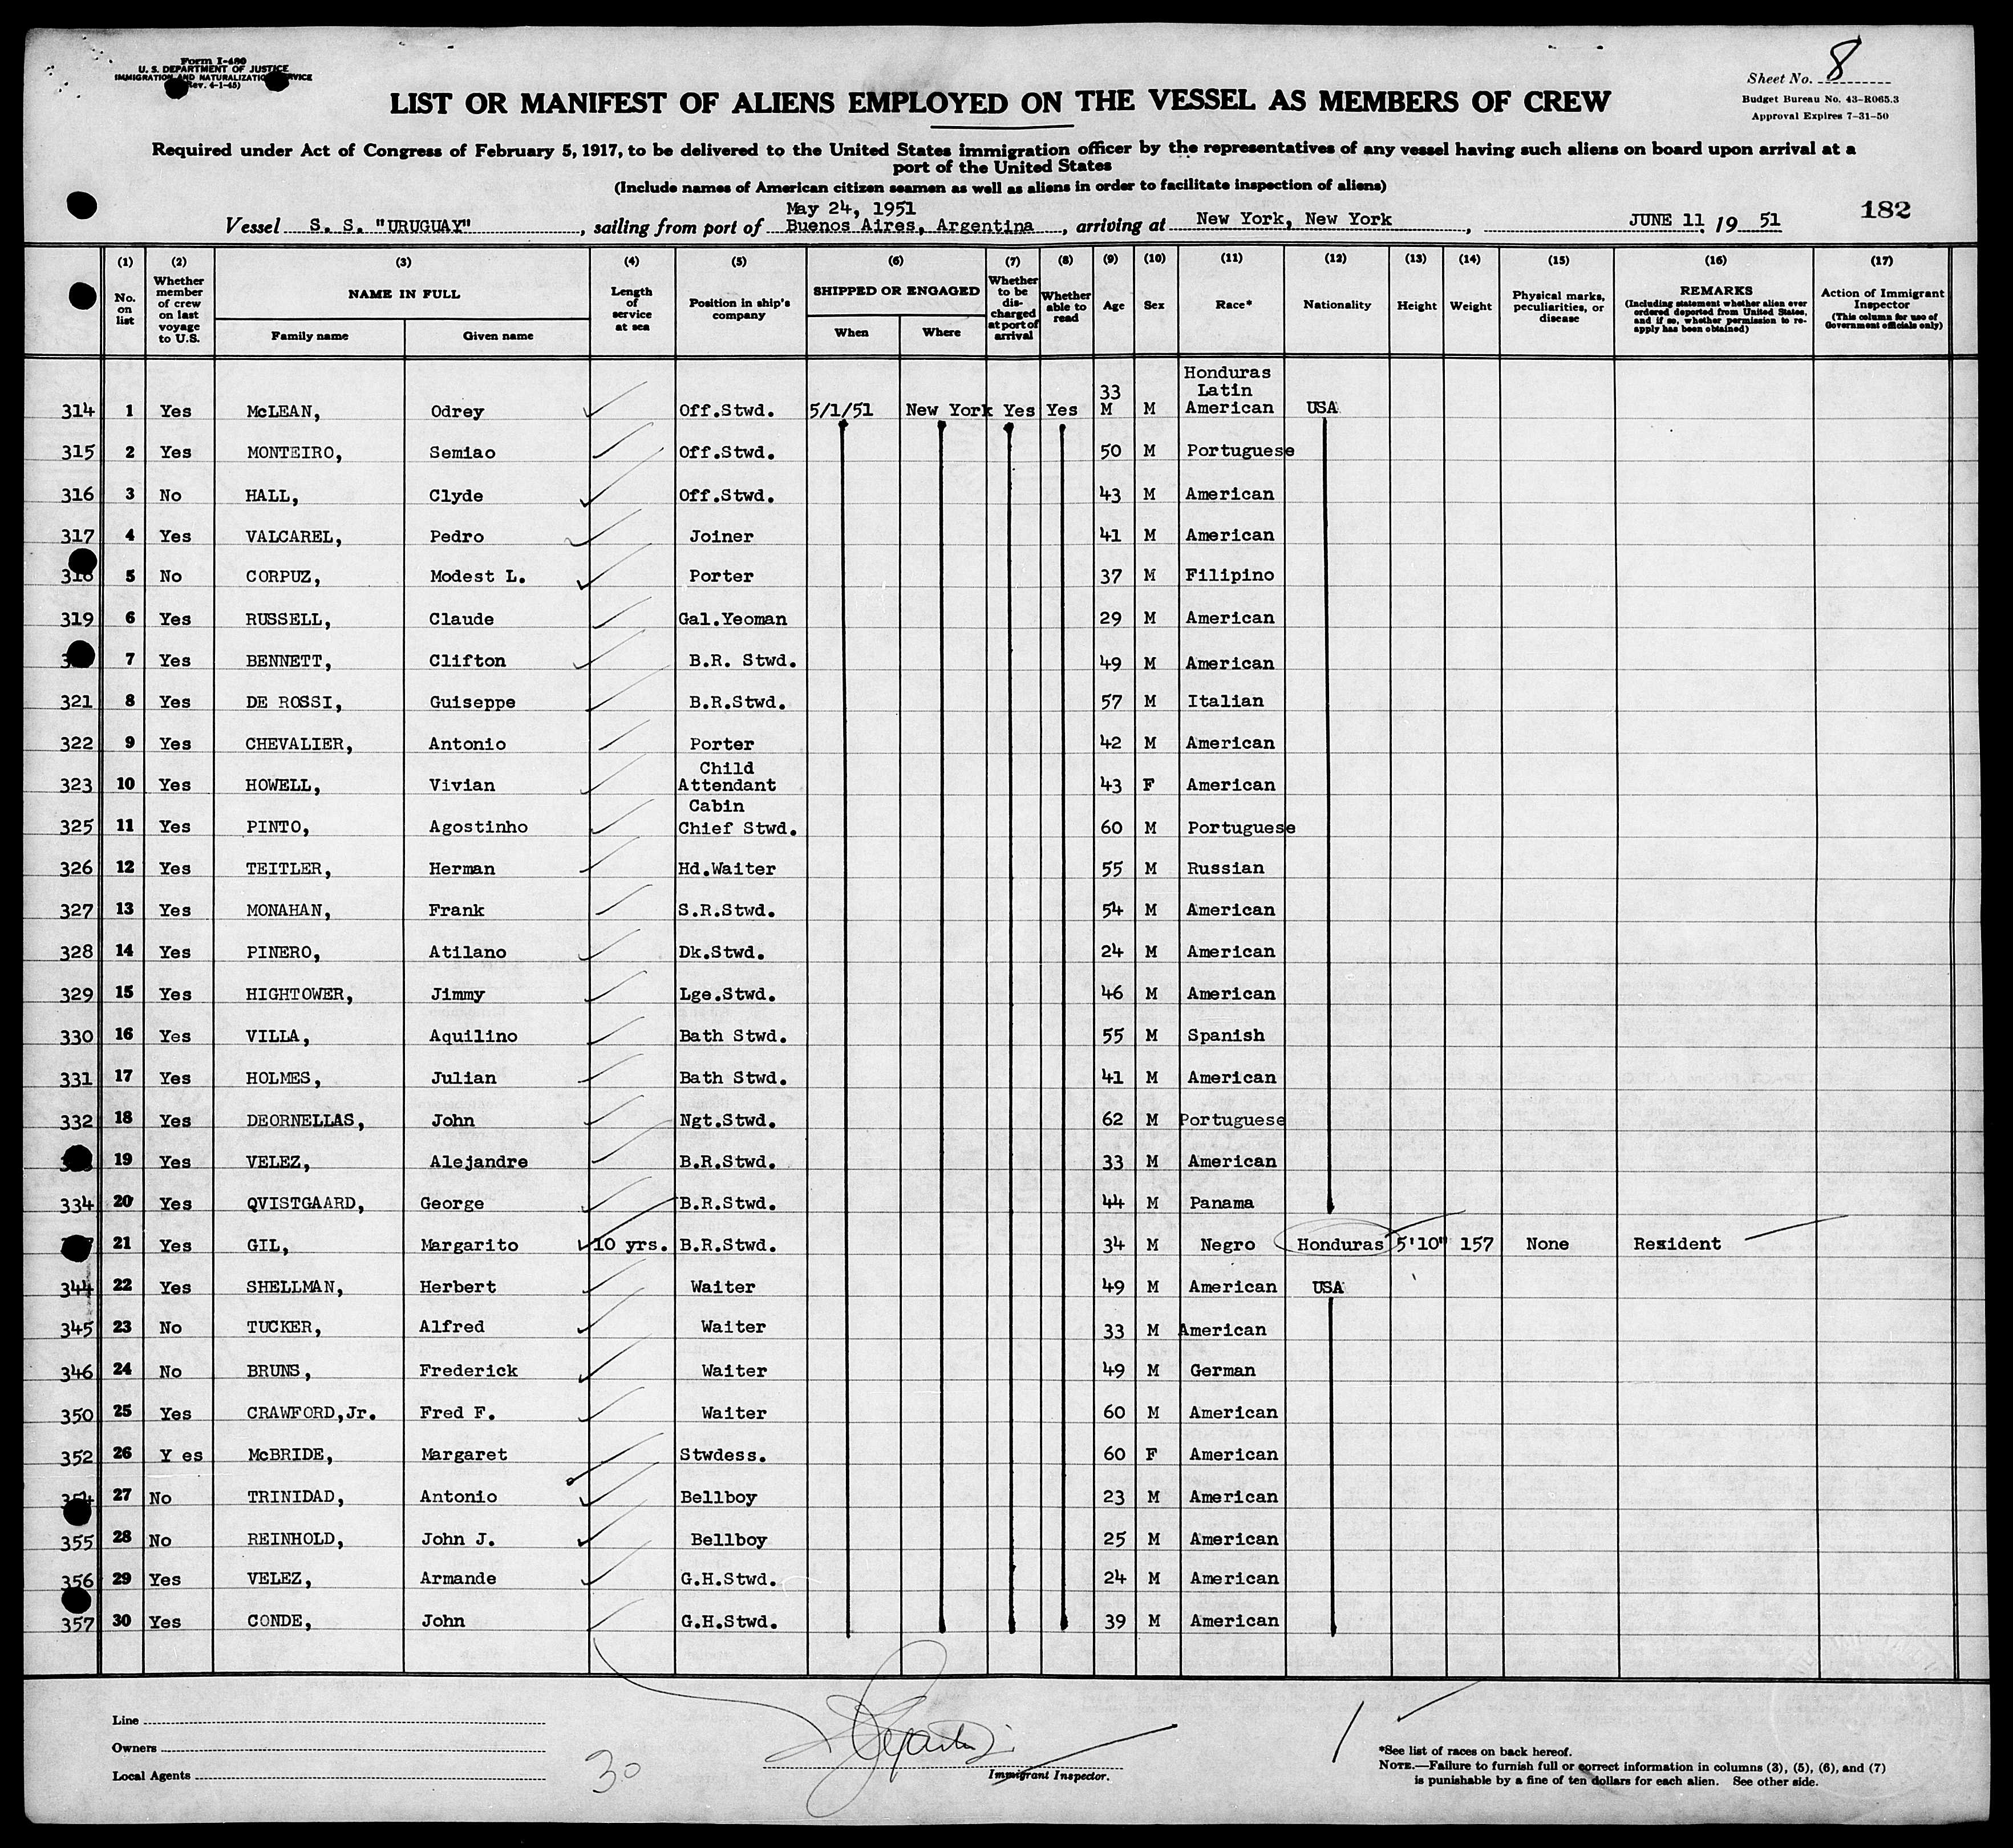 Form I-480
U. S. DEPARTMENT OF JUSTICE
IMMIGRATION AND NATURALIZATION SERVICE
(Rev. 4-1-45)
Sheet No. 8
Budget Bureau No. 43-R065.3
Approval Expires 7-31-50
LIST OR MANIFEST OF ALIENS EMPLOYED ON THE VESSEL AS MEMBERS OF CREW
Required under Act of Congress of February 5, 1917, to be delivered to the United States immigration officer by the representatives of any vessel having such aliens on board upon arrival at a
port of the United States
(Include names of American citizen seamen as well as aliens in order to facilitate inspection of aliens)
May 24, 1951
Vessel S. S. "URUGUAY", sailing from port of Buenos Aires, Argentina, arriving at New York, New York, JUNE 11, 19 51
182
(1) (2) (3) (4) (5) (6) (7) (8) (9) (10) (11) (12) (13) (14) (15) (16) (17)
No. on list
Whether member of crew on last voyage to U.S.
NAME IN FULL
Family name Given name
Length of service at sea
Position in ship's company
SHIPPED OR ENGAGED
When Where
Whether to be discharged at port of arrival
Whether able to read
Age
Sex
Race*
Nationality
Height
Weight
Physical marks, peculiarities, or disease
REMARKS
(Including statement whether alien ever ordered deported from United States, and if so, whether permission to reapply has been obtained)
Action of Immigrant Inspector
(This column for use of Government officials only)
314 1 Yes McLEAN, Odrey Off.Stwd. 5/1/51 New York Yes Yes 33 M M Honduras Latin American USA
315 2 Yes MONTEIRO, Semiao Off.Stwd. 50 M Portuguese
316 3 No HALL, Clyde Off.Stwd. 43 M American
317 4 Yes VALCAREL, Pedro Joiner 41 M American
318 5 No CORPUZ, Modest L. Porter 37 M Filipino
319 6 Yes RUSSELL, Claude Gal.Yeoman 29 M American
7 Yes BENNETT, Clifton B.R. Stwd. 49 M American
321 8 Yes DE ROSSI, Guiseppe B.R.Stwd. 57 M Italian
322 9 Yes CHEVALIER, Antonio Porter 42 M American
323 10 Yes HOWELL, Vivian Child Attendant 43 F American
325 11 Yes PINTO, Agostinho Cabin Chief Stwd. 60 M Portuguese
326 12 Yes TEITLER, Herman Hd.Waiter 55 M Russian
327 13 Yes MONAHAN, Frank S.R.Stwd. 54 M American
328 14 Yes PINERO, Atilano Dk.Stwd. 24 M American
329 15 Yes HIGHTOWER, Jimmy Lge.Stwd. 46 M American
330 16 Yes VILLA, Aquilino Bath Stwd. 55 M Spanish
331 17 Yes HOLMES, Julian Bath Stwd. 41 M American
332 18 Yes DEORNELLAS, John Ngt.Stwd. 62 M Portuguese
19 Yes VELEZ, Alejandre B.R.Stwd. 33 M American
334 20 Yes QVISTGAARD, George B.R.Stwd. 44 M Panama
21 Yes GIL, Margarito 10 yrs. B.R.Stwd. 34 M Negro Honduras 5'10" 157 None Resident
344 22 Yes SHELLMAN, Herbert Waiter 49 M American USA
345 23 No TUCKER, Alfred Waiter 33 M American
346 24 No BRUNS, Frederick Waiter 49 M German
350 25 Yes CRAWFORD,Jr. Fred F. Waiter 60 M American
352 26 Y es McBRIDE, Margaret Stwdess. 60 F American
354 27 No TRINIDAD, Antonio Bellboy 23 M American
355 28 No REINHOLD, John J. Bellboy 25 M American
356 29 Yes VELEZ, Armande G.H.Stwd. 24 M American
357 30 Yes CONDE, John G.H.Stwd. 39 M American
Line
Owners
Local Agents
30
Immigrant Inspector.
*See list of races on back hereof.
NOTE.—Failure to furnish full or correct information in columns (3), (5), (6), and (7)
is punishable by a fine of ten dollars for each alien. See other side.